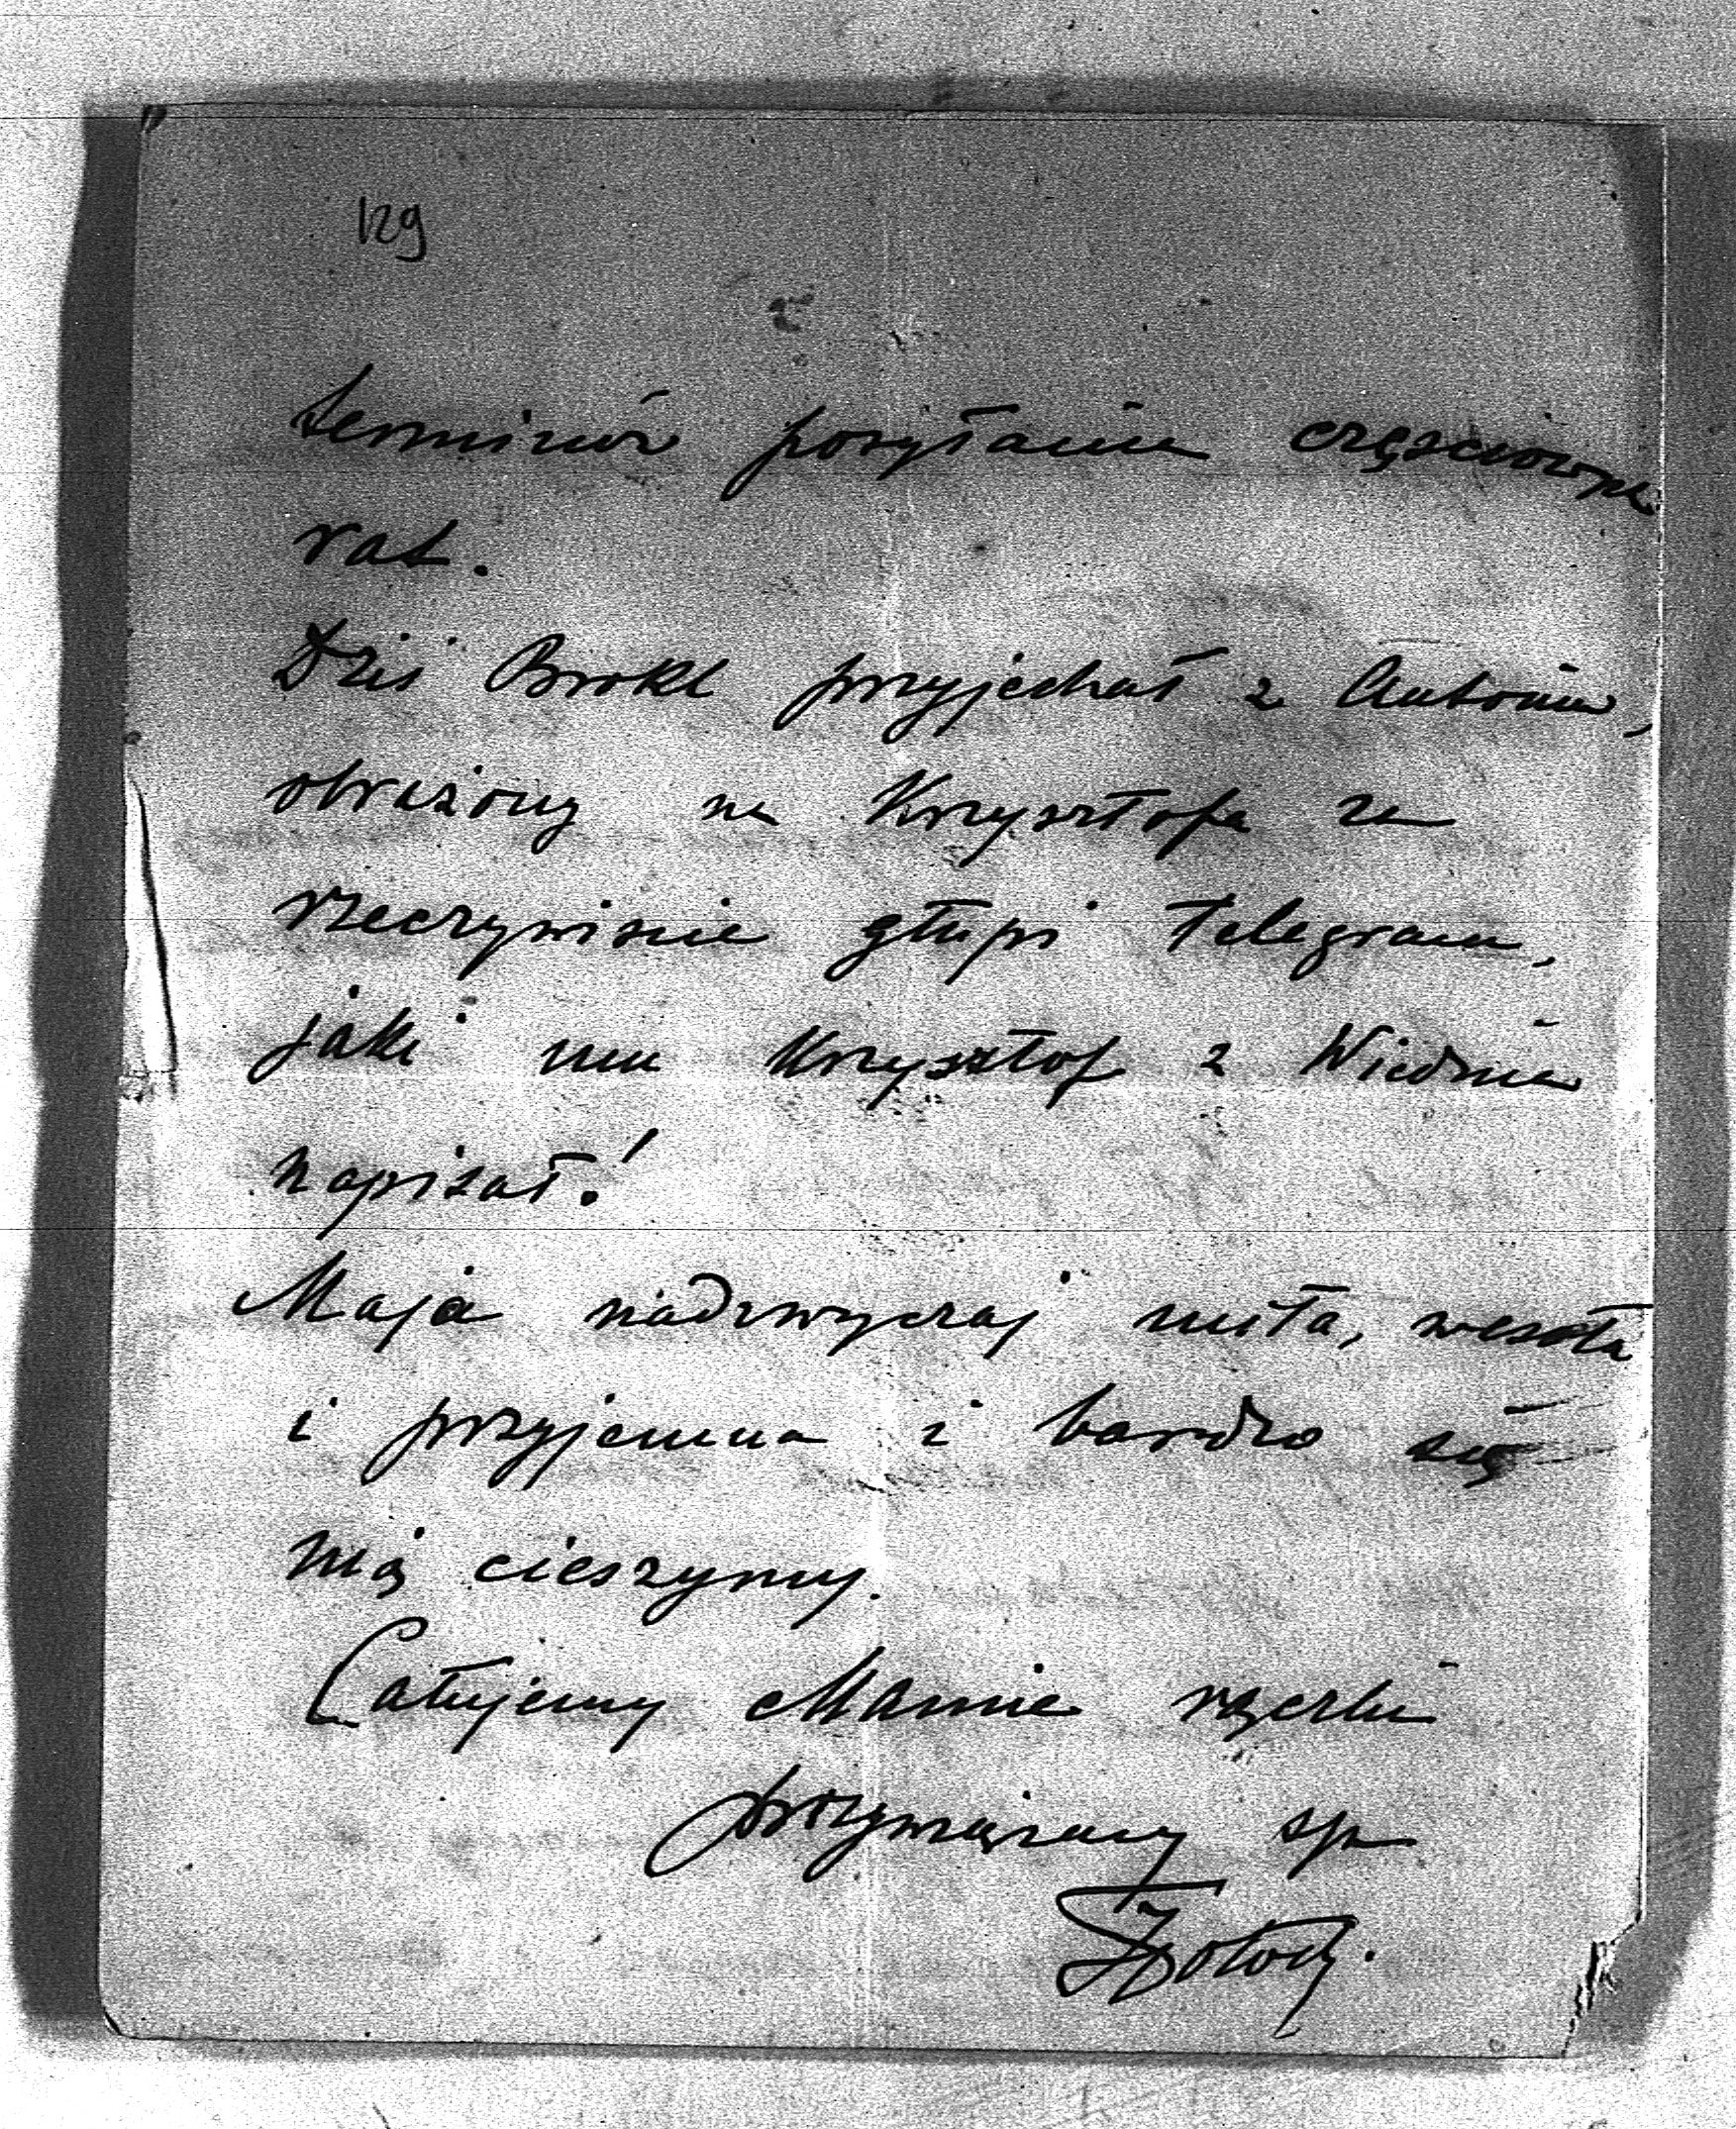 129
terminów posyłania częściowych
rat.
Dziś Brokl przyjechał z Antonin,
obrażony na Krzysztofa za
rzeczywiście głupi telegram,
jaki mu Krzysztof z Wiednia
napisał!
Maja nadzwyczaj miła, wesoła
i przyjemna i bardzo się
nią cieszymy.
Całujemy Mamie rączki
przywiązany syn